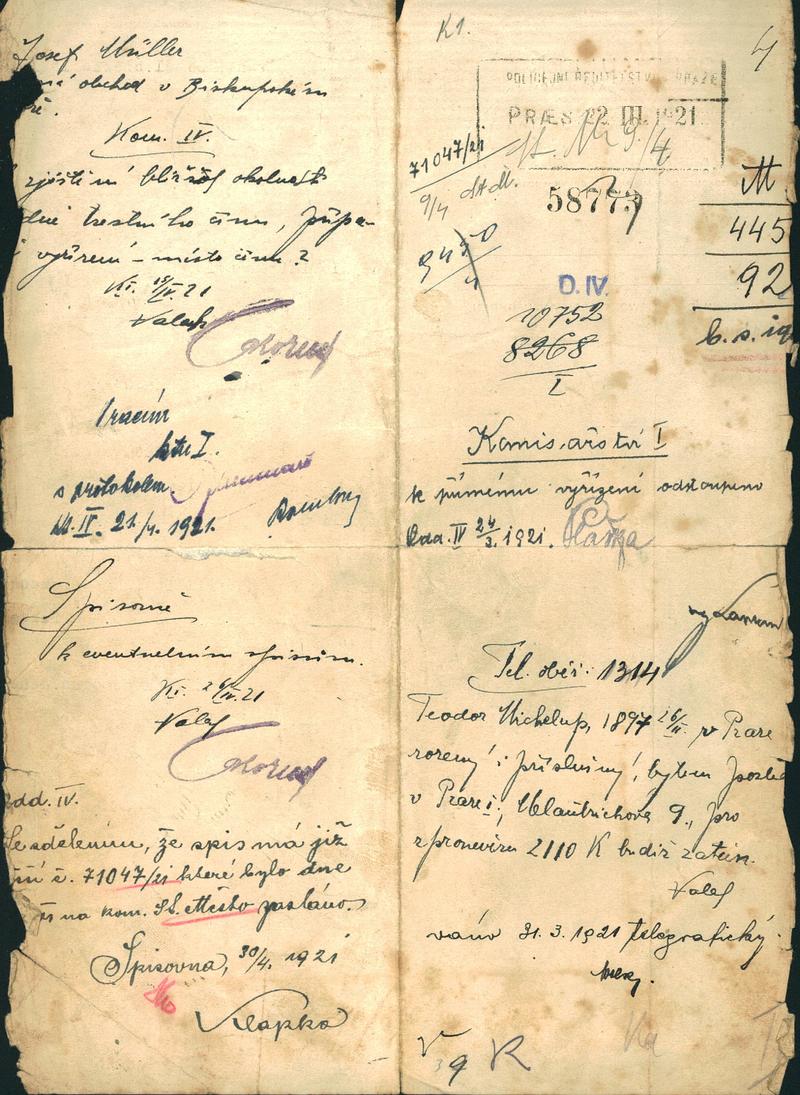 Josef Müller
má obchod v Biskupském
Kom. IV.
zjištění bližších okolností
trestního činu, přípa-
vyřízení – místo činu?
K I. 15/IV. 21
Valeš
Vracím
ktu I.
s protokolem
K. IV. 21./4. 1921.
Spisovně
k eventuelním spisům.
K I. 26/IV. 21
Valeš
Odd. IV.
Se sdělením, že spis má již
čís. č. 71047/21 které bylo dne
na kom. St. Město zasláno.
Spisovna, 30/4. 1921
Klapka
K 1.
4
POLICEJNÍ ŘEDITELSTVÍ V PRAZE
PRÆS 22 III. 1921
71047/21
9/4
9/4
58773
9450
4
D. IV.
10752
8268
I
M
445
92
b. s. ig
Komisařství I
k přímému vyřízení odstoupeno
Odd. IV 24/3. 1921.
Tel. oběž. 1314
Teodor Michelup, 1897 26/II v Praze
rozený i příslušný, bytem posled
v Praze I, Melantrichova 9., pro
zpronevěru 2110 K budiž zatčen.
Valeš
31. 3. 1921 telegrafický
V
9 R
Ka